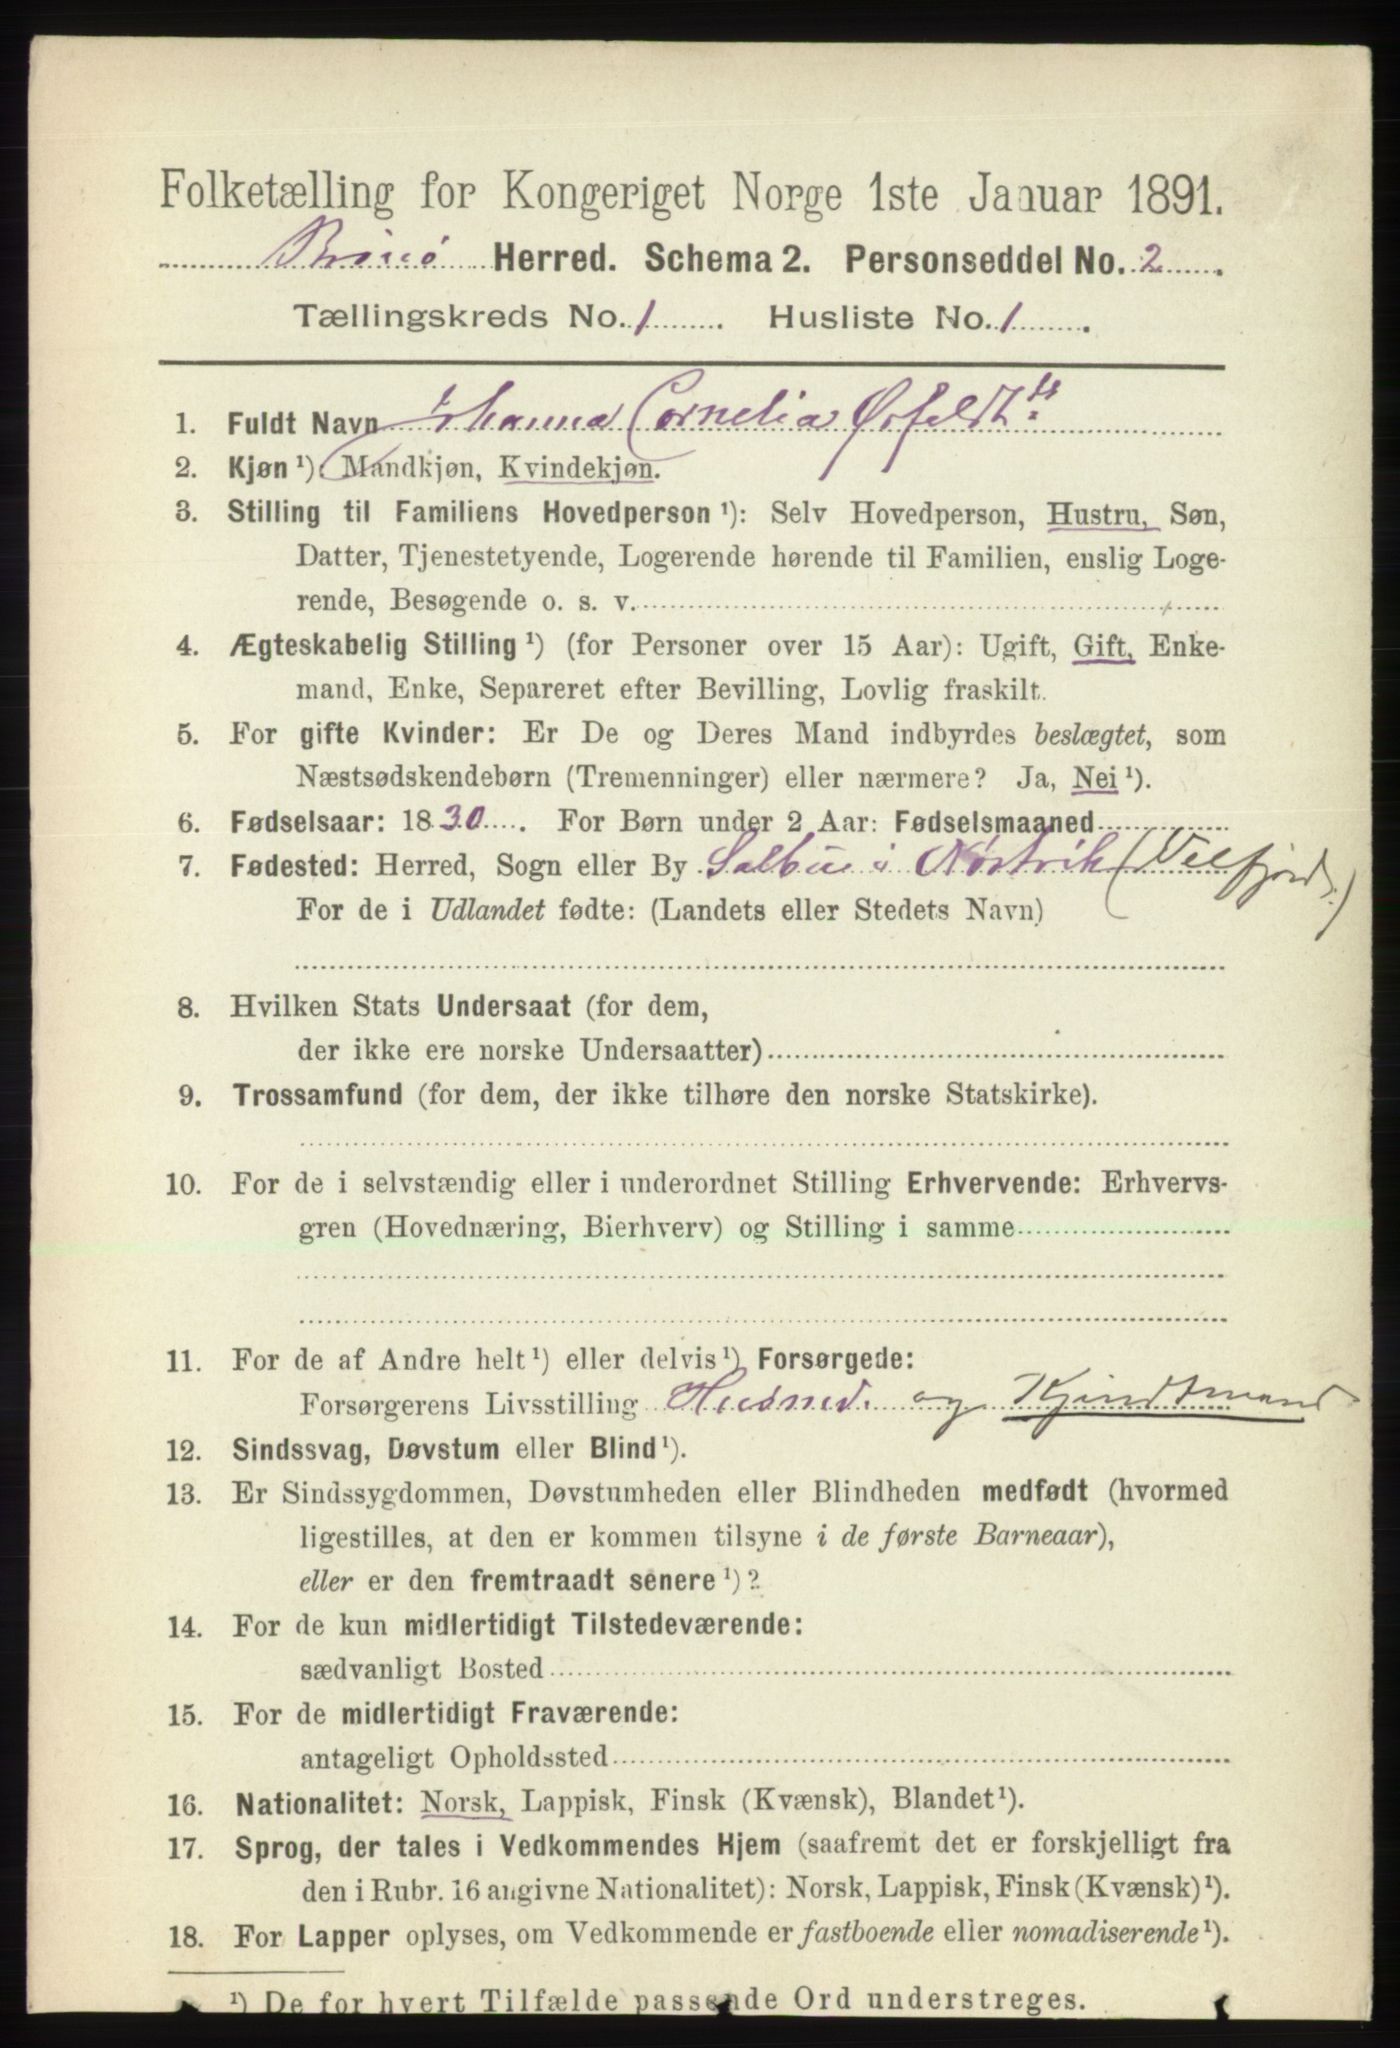 Folketælling for Kongeriget Norge 1ste Januar 1891.
Brønø Herred. Schema 2. Personseddel No. 2.
Tællingskreds No. 1. Husliste No. 1.
1. Fuldt Navn Johanna Cornelia Ørfeldt
2. Kjøn ¹): Mandkjøn, Kvindekjøn.
3. Stilling til Familiens Hovedperson ¹): Selv Hovedperson, Hustru, Søn,
Datter, Tjenestetyende, Logerende hørende til Familien, enslig Loge-
rende, Besøgende o. s. v.
4. Ægteskabelig Stilling ¹) (for Personer over 15 Aar): Ugift, Gift, Enke-
mand, Enke, Separeret efter Bevilling, Lovlig fraskilt.
5. For gifte Kvinder: Er De og Deres Mand indbyrdes beslægtet, som
Næstsødskendebørn (Tremenninger) eller nærmere? Ja, Nei ¹).
6. Fødselsaar: 1830. For Børn under 2 Aar: Fødselsmaaned
7. Fødested: Herred, Sogn eller By i (Velfjord)
For de i Udlandet fødte: (Landets eller Stedets Navn)
8. Hvilken Stats Undersaat (for dem,
der ikke ere norske Undersaatter)
9. Trossamfund (for dem, der ikke tilhøre den norske Statskirke).
10. For de i selvstændig eller i underordnet Stilling Erhvervende: Erhvervs-
gren (Hovednæring, Bierhverv) og Stilling i samme
11. For de af Andre helt ¹) eller delvis ¹) Forsørgede:
Forsørgerens Livsstilling Husmd. og
12. Sindssvag, Døvstum eller Blind ¹).
13. Er Sindssygdommen, Døvstumheden eller Blindheden medfødt (hvormed
ligestilles, at den er kommen tilsyne i de første Barneaar),
eller er den fremtraadt senere ¹)?
14. For de kun midlertidigt Tilstedeværende:
sædvanligt Bosted
15. For de midlertidigt Fraværende:
antageligt Opholdssted
16. Nationalitet: Norsk, Lappisk, Finsk (Kvænsk), Blandet ¹).
17. Sprog, der tales i Vedkommendes Hjem (saafremt det er forskjelligt fra
den i Rubr. 16 angivne Nationalitet): Norsk, Lappisk, Finsk (Kvænsk) ¹).
18. For Lapper oplyses, om Vedkommende er fastboende eller nomadiserende ¹).
¹) De for hvert Tilfælde passende Ord understreges.